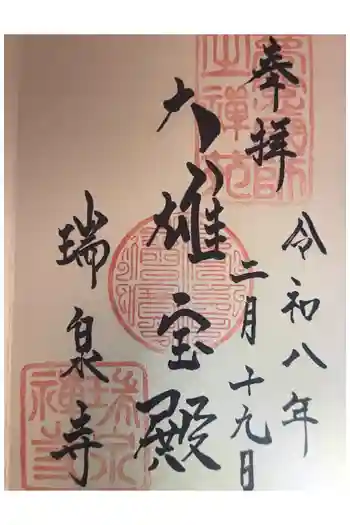 奉拝
令和八年
二月十九日
大雄宝殿
瑞泉寺